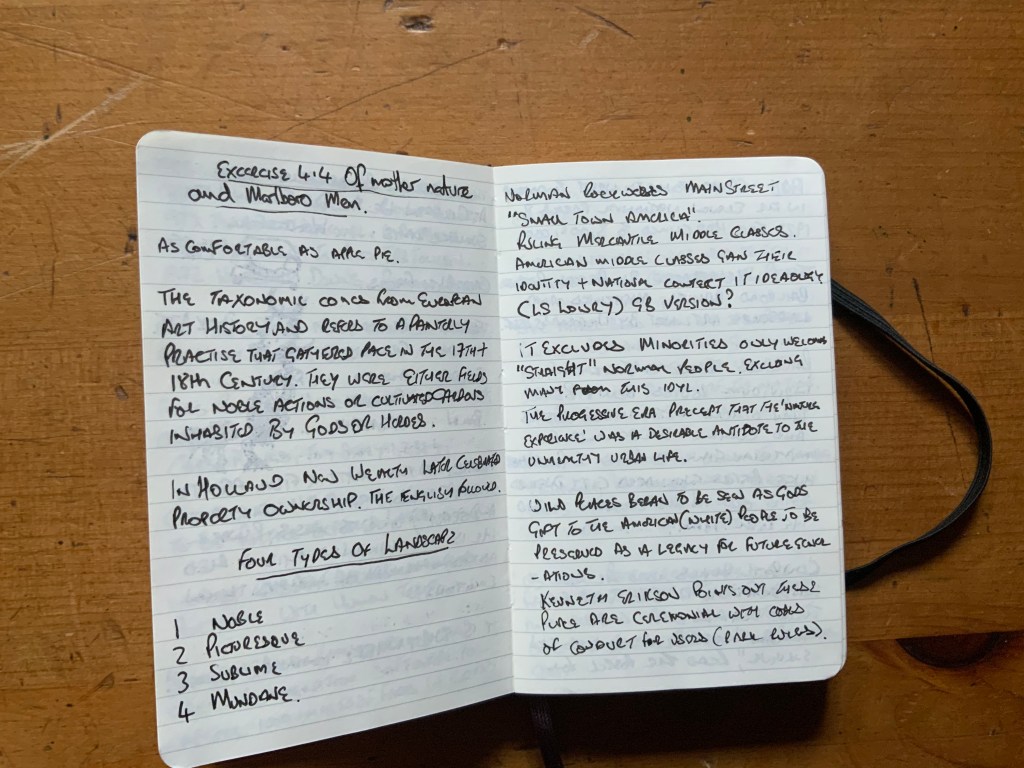 Excercise 4.4 Of mother nature
and Marlboro Men.
AS COMFORTABLE AS APPLE PIE.
THE TAXONOMIC COMES FROM EUROPEAN
ART HISTORY, AND REFERS TO A PAINTERLY
PRACTISE THAT GATHERED PACE IN THE 17TH +
18TH CENTURY. THEY WERE EITHER FIELDS
FOR NOBLE ACTIONS OR CULTIVATED GARDENS
INHABITED BY GODS OR HEROES.
IN HOLLAND NEW WEALTH LATER CELEBRATED
PROPERTY OWNERSHIP. THE ENGLISH FOLLOWED.
FOUR TYPES OF LANDSCAPE
1 NOBLE
2 PICTURESQUE
3 SUBLIME
4 MUNDANE.
NORMAN ROCKWELLS MAINSTREET
"SMALL TOWN AMERICA".
RISING MERCANTILE MIDDLE CLASSES.
AMERICAN MIDDLE CLASSES GAIN THEIR
IDENTITY + NATIONAL CONTEXT IT IDEOLOGY
(LS LOWRY) GB VERSION?
IT EXCLUDES MINORITIES ONLY WELCOMES
"STRAIGHT" NORMAL PEOPLE. EXCLUDING
MANY FROM THIS IDYL.
THE PROGRESSIVE ERA PRECEPT THAT THE 'NATURE
EXPERIENCE' WAS A DESIRABLE ANTIDOTE TO THE
UNHEALTHY URBAN LIFE.
WILD PLACES BEGAN TO BE SEEN AS GODS
GIFT TO THE AMERICAN (WHITE) PEOPLE TO BE
PRESERVED AS A LEGACY FOR FUTURE GENER
-ATIONS.
KENNETH ERIKSON POINTS OUT THESE
ARE CEREMONIAL WITH CODES
OF CONDUCT FOR USERS (PARK RULES).